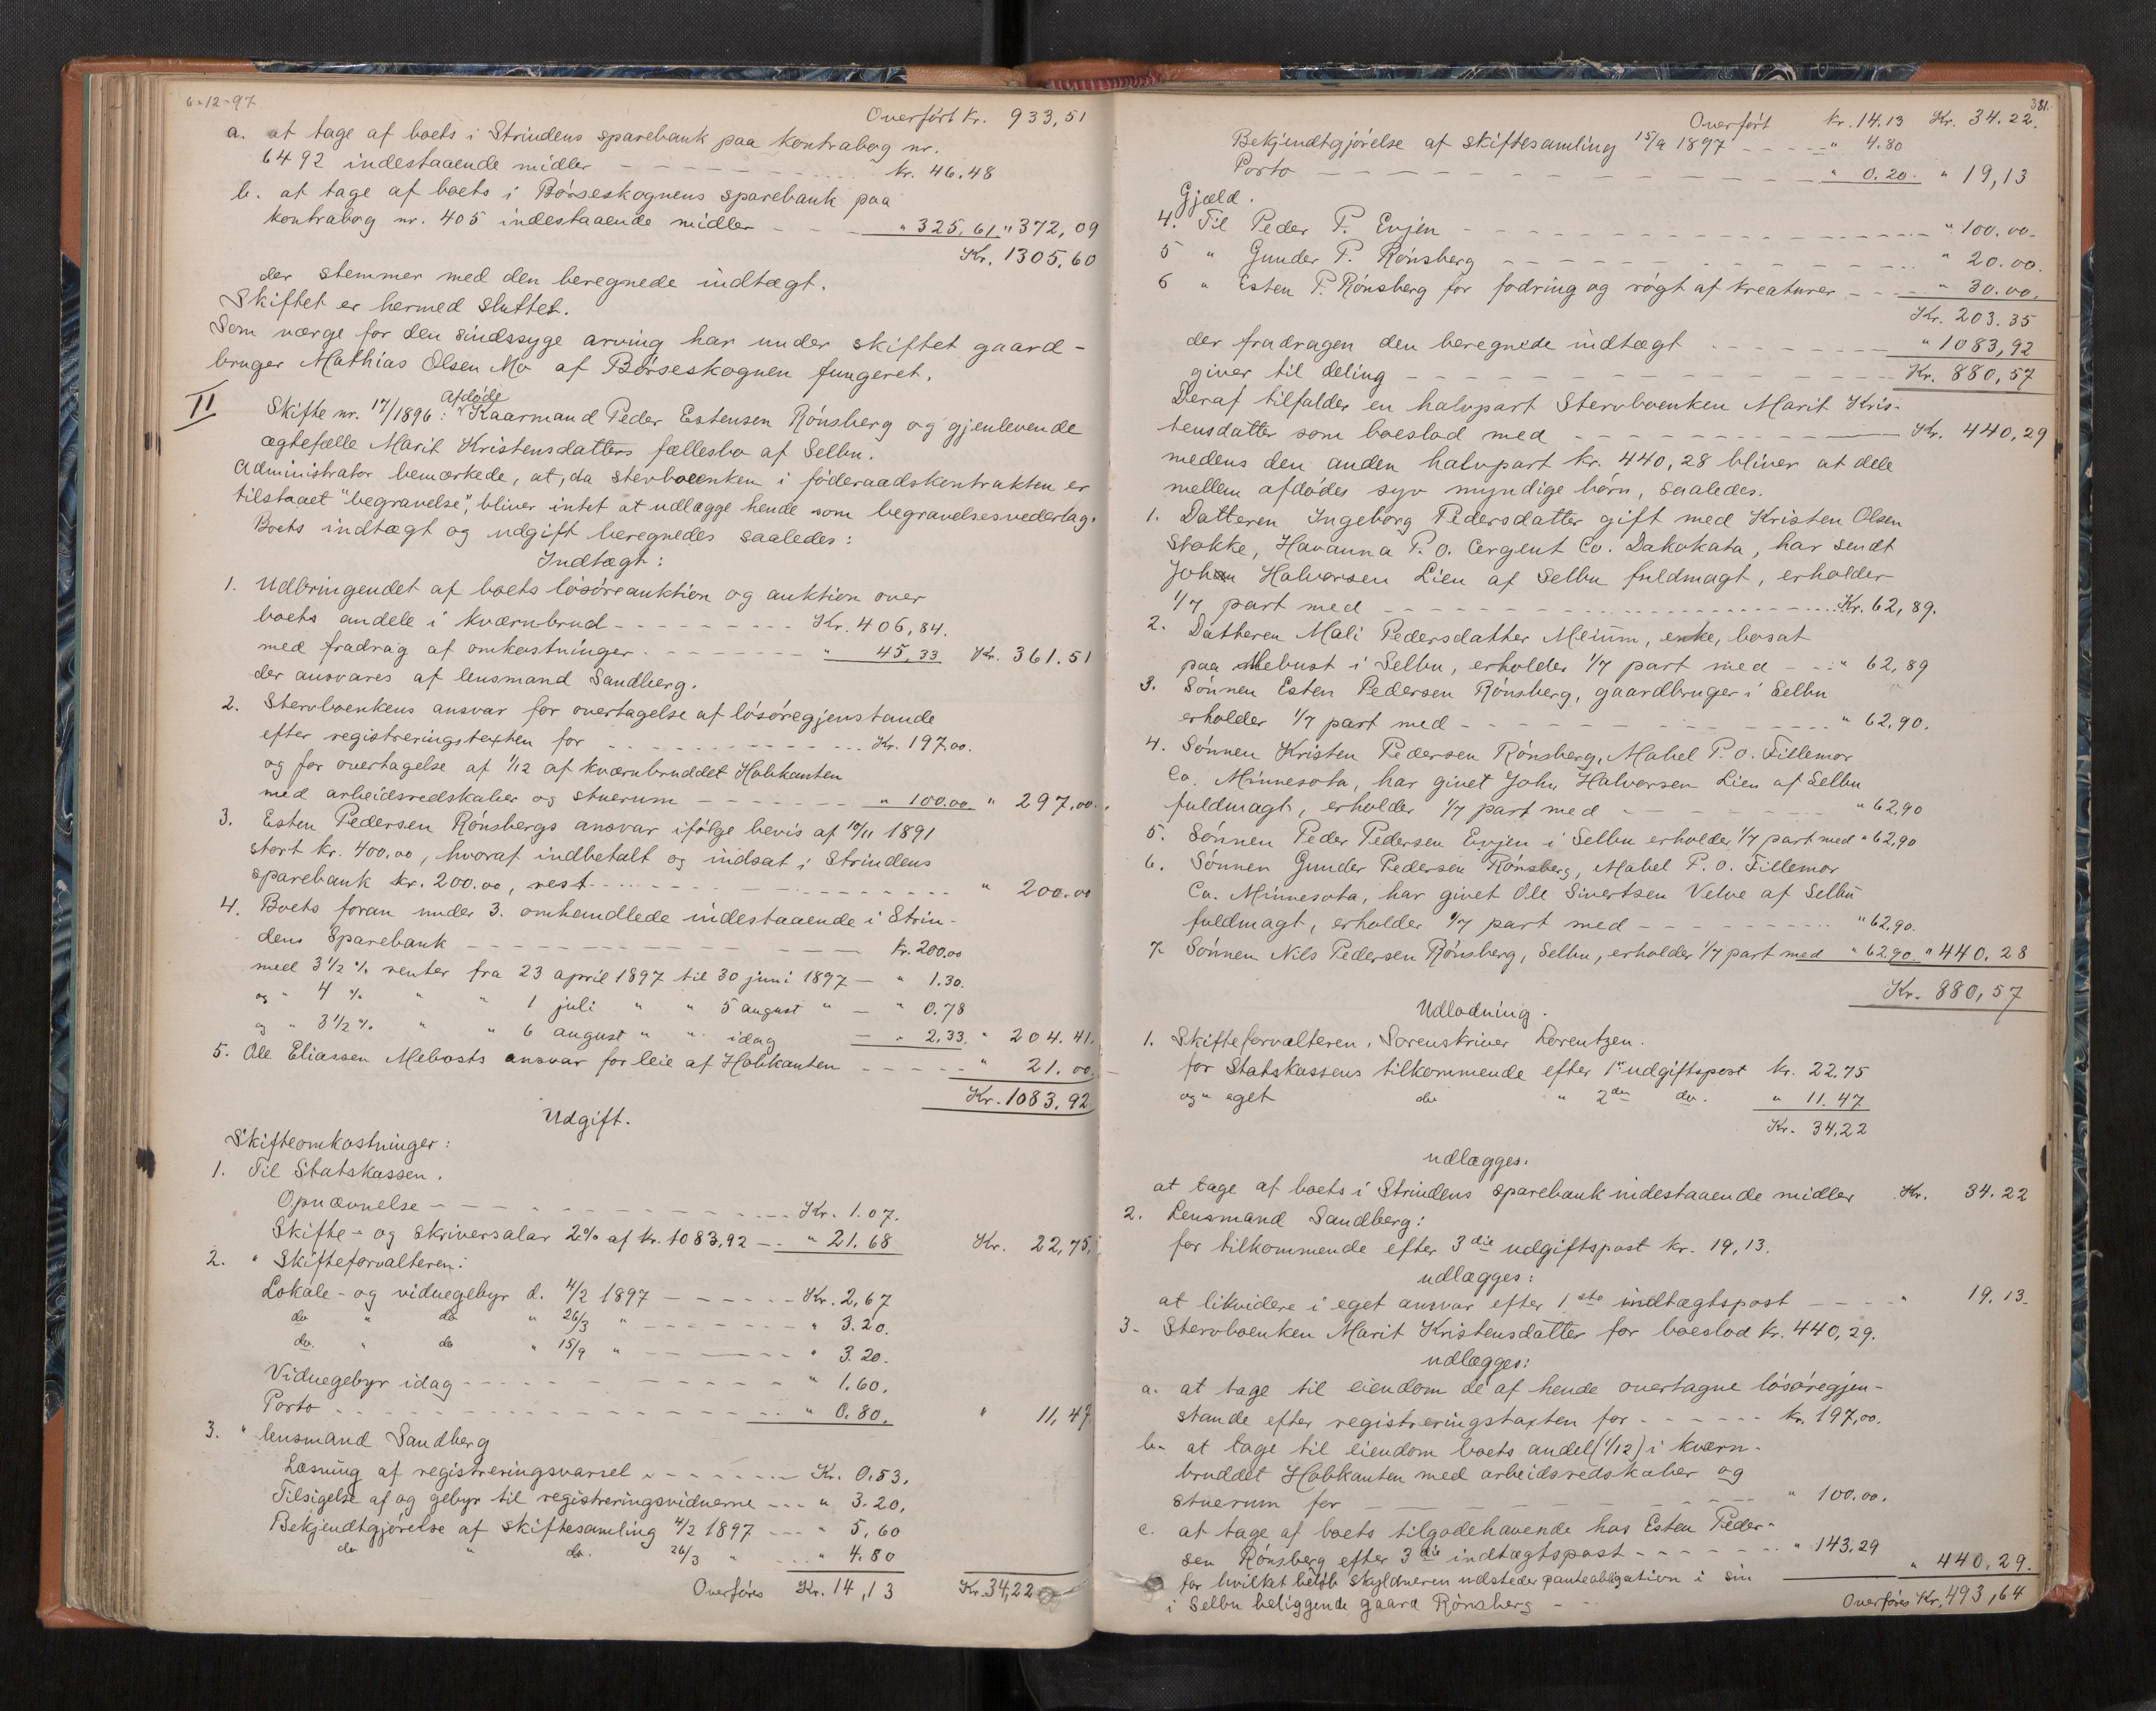 6-12-97.
Overført Kr. 933,51
a. at tage af boets i Strindens sparebank paa kontrabog nr.
6492 indestaaende midler - - - kr. 46.48
b. at tage af boets i Børseskognens sparebank paa
kontrabog nr. 405 indestaaende midler - - - " 325,61 " 372,09
Kr. 1305,60
der stemmer med den beregnede indtægt.
Skiftet er hermed sluttet.
Som værge for den sindssyge arving har under skiftet gaard-
bruger Mathias Olsen Mo af Børseskognen fungeret.
II
Skifte nr. 17/1896: Afdøde Kaarmand Peder Estensen Rønsberg og gjenlevende
ægtefælle Marit Kristensdatters fællesbo af Selbu.
Administrator bemærkede, at, da stervboenken i føderaadskontrakten er
tilstaaet "begravelse", bliver intet at udlægge hende som begravelsesvederlag.
Boets indtægt og udgift beregnedes saaledes:
Indtægt:
1. Udbringendet af boets løsøreauktion og auktion over
boets andele i kværnbrud - - - Kr. 406,84.
med fradrag af omkostninger - - - " 45,33 Kr. 361.51
der ansvares af lensmand Sandberg.
2. Stervboenkens ansvar for overtagelse af løsøregjenstande
efter registreringstaxten for - - - Kr. 197.00.
og for overtagelse af 1/12 af kværnbruddet Hobkanten
med arbeidsredskaber og stuerum - - - " 100.00 " 297,00.
3. Esten Pedersen Rønsbergs ansvar ifølge bevis af 10/11 1891
stort kr. 400.00, hvoraf indbetalt og indsat i Strindens
sparebank kr. 200.00, rest - - - " 200.00
4. Boets foran under 3. omhandlede indestaaende i Strin-
dens Sparebank - - - kr. 200.00
med 3 1/2 % renter fra 23 april 1897 til 30 juni 1897 - " 1.30.
og " 4 % " " 1 juli " " 5 august " - " 0.78
og " 3 1/2 % " " 6 august " " idag - " 2,33. " 204.41.
5. Ole Eliassen Mebosts ansvar for leie af Hobkanten - - - " 21.00.
Kr. 1083.92
Udgift.
Skifteomkostninger:
1. Til Statskassen.
Opnævnelse - - - Kr. 1.07.
Skifte- og skriversalar 2% af kr. 1083,92 - - " 21.68 Kr. 22,75.
2. " Skifteforvalteren:
Lokale- og vidnegebyr d. 4/2 1897 - - - Kr. 2,67
do " do " 26/3 " - - - " 3.20.
do. " do " 15/9 " - - - " 3.20.
Vidnegebyr idag - - - " 1.60.
Porto - - - " 0.80. " 11,47.
3. " lensmand Sandberg
Læsning af registreringsvarsel - - - Kr. 0.53.
Tilsigelse af og gebyr til registreringsvidnerne - - - " 3.20.
Bekjendtgjørelse af skiftesamling 4/2 1897 - - - " 5,60
do " do. 26/3 " - - - " 4.80
Overføres Kr. 14,13 Kr. 34,22
381.
Overført kr. 14.13 Kr. 34.22.
Bekjendtgjørelse af skiftesamling 15/9 1897 - - - " 4.80
Porto - - - " 0.20. " 19,13
Gjæld.
4. Til Peder P. Evjen - - - " 100.00.
5 " Gunder P. Rønsberg - - - " 20.00.
6 " Esten P. Rønsberg for fodring og røgt af kreaturer - - - " 30.00.
Kr. 203.35
der fradragen den beregnede indtægt - - - " 1083,92
giver til deling - - - Kr. 880,57
Deraf tilfalder en halvpart Stervboenken Marit Kris-
tensdatter som boeslod med - - - Kr. 440,29
medens den anden halvpart kr. 440,28 bliver at dele
mellem afdødes syv myndige børn, saaledes.
1. Datteren Ingeborg Pedersdatter gift med Kristen Olsen
Stokke, Havanna P.O. Cergent Co. Dakokata, har sendt
John Halvorsen Lien af Selbu fuldmagt, erholder
1/7 part med - - - Kr. 62,89.
2. Datteren Mali Pedersdatter Meium, enke, bosat
paa Mebust i Selbu, erholder 1/7 part med - - " 62,89
3. Sønnen Esten Pedersen Rønsberg, gaardbruger i Selbu
erholder 1/7 part med - - - " 62,90.
4. Sønnen Kristen Pedersen Rønsberg, Mabel P.O. Fillemor
Co. Minnesota, har givet John Halvorsen Lien af Selbu
fuldmagt, erholder 1/7 part med - - - " 62,90
5. Sønnen Peder Pedersen Evjen i Selbu erholder 1/7 part med " 62,90
6. Sønnen Gunder Pedersen Rønsberg, Mabel P.O. Fillemor
Co. Minnesota, har givet Ole Sivertsen Velve af Selbu
fuldmagt, erholder 1/7 part med - - - " 62,90.
7. Sønnen Nils Pedersen Rønsberg, Selbu, erholder 1/7 part med " 62.90 " 440.28
Kr. 880,57
Udlodning.
1. Skifteforvalteren, Sorenskriver Lorentzen.
for Statskassens tilkommende efter 1ste udgiftspost kr. 22.75
og " eget do " 2den do. " 11.47
Kr. 34,22
udlægges:
at tage af boets i Strindens sparebank indestaaende midler Kr. 34.22
2. Lensmand Sandberg:
for tilkommende efter 3die udgiftspost kr. 19,13.
udlægges:
at likvidere i eget ansvar efter 1ste indtægtspost - - - " 19.13.
3. Stervboenken Marit Kristensdatter for boeslod kr. 440,29.
udlægges:
a. at tage til eiendom de af hende overtagne løsøregjen-
stande efter registreringstaxten for - - - kr. 197,00.
b. at tage til eiendom boets andel (1/12) i kværn-
bruddet Hobkanten med arbeidsredskaber og
stuerum for - - - " 100.00.
c. at tage af boets tilgodehavende hos Esten Peder-
sen Rønsberg efter 3die indtægtspost - - - " 143.29 " 440.29.
for hvilket beløb skyldneren udsteder panteobligation i sin
i Selbu beliggende gaard Rønsberg - - Overføres Kr. 493,64